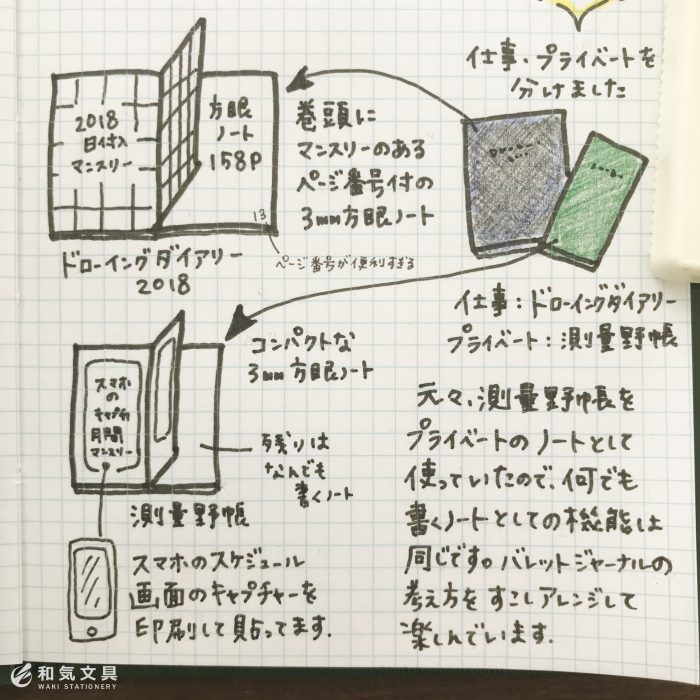 仕事・プライベートを
分けました
2018
日付入
マンスリー
方眼
ノート
158P
13
巻頭に
マンスリーのある
ページ番号付の
3mm方眼ノート
ドローイングダイアリー
2018
ページ番号が便利すぎる
仕事：ドローイングダイアリー
プライベート：測量野帳
スマホ
の
キャプチャ
月間
マンスリー
コンパクトな
3mm方眼ノート
残りは
なんでも
書くノート
測量野帳
スマホのスケジュール
画面のキャプチャーを
印刷して貼ってます.
元々、測量野帳を
プライベートのノートとして
使っていたので、何でも
書くノートとしての機能は
同じです。バレットジャーナルの
考え方をすこしアレンジして
楽しんでいます.
和気文具
WAKI STATIONERY